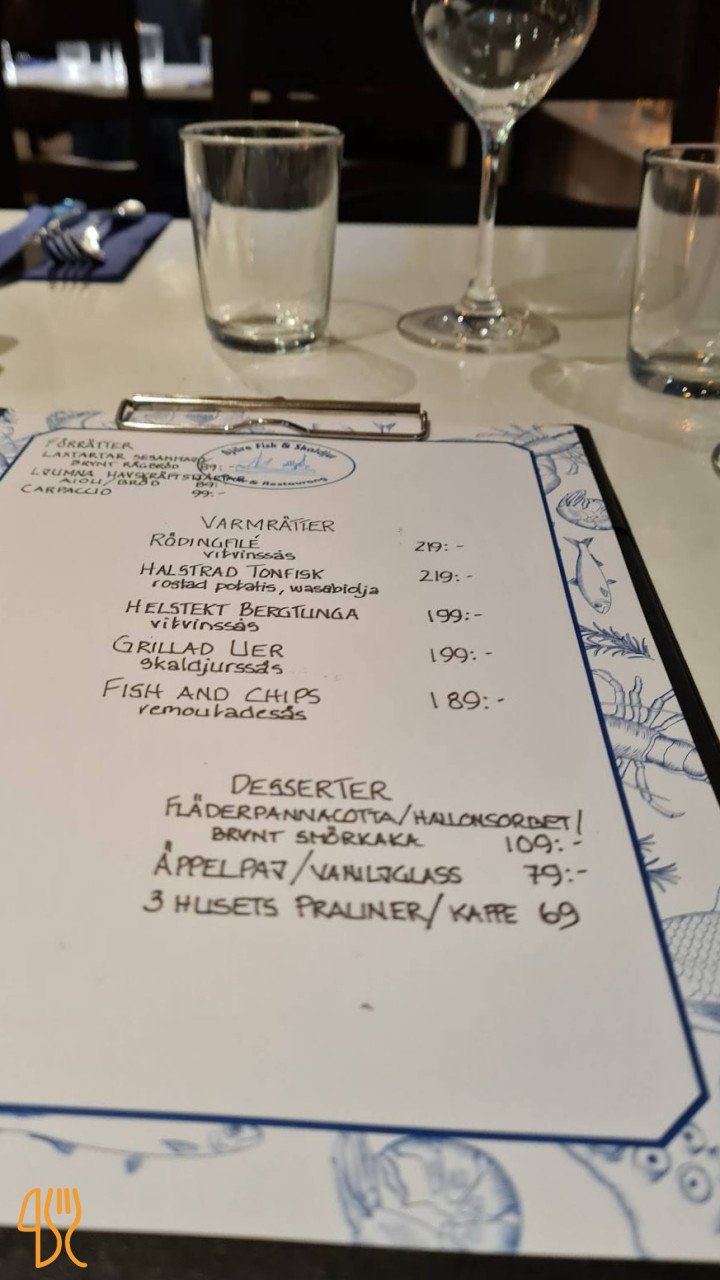 FÖRRÄTTER
LAXTARTAR SESAMMAJO
BRYNT RÅGBRÖD 89:-
LJUMNA HAVSKRÄFTSTJÄRTAR
AIOLI/BRÖD 89:-
CARPACCIO 99:-
Sjöbo Fisk & Skaldjur
& Restaurang
VARMRÄTTER
RÖDINGFILÉ 219:-
vitvinssås
HALSTRAD TONFISK 219:-
rostad potatis, wasabiolja
HELSTEKT BERGTUNGA 199:-
vitvinssås
GRILLAD UER 199:-
skaldjurssås
FISH AND CHIPS 189:-
remouladesås
DESSERTER
FLÄDERPANNACOTTA/HALLONSORBET/
BRYNT SMÖRKAKA 109:-
ÄPPELPAJ/VANILJGLASS 79:-
3 HUSETS PRALINER/KAFFE 69